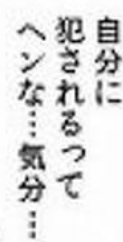 自分に
犯されるって
ヘンな…気分…